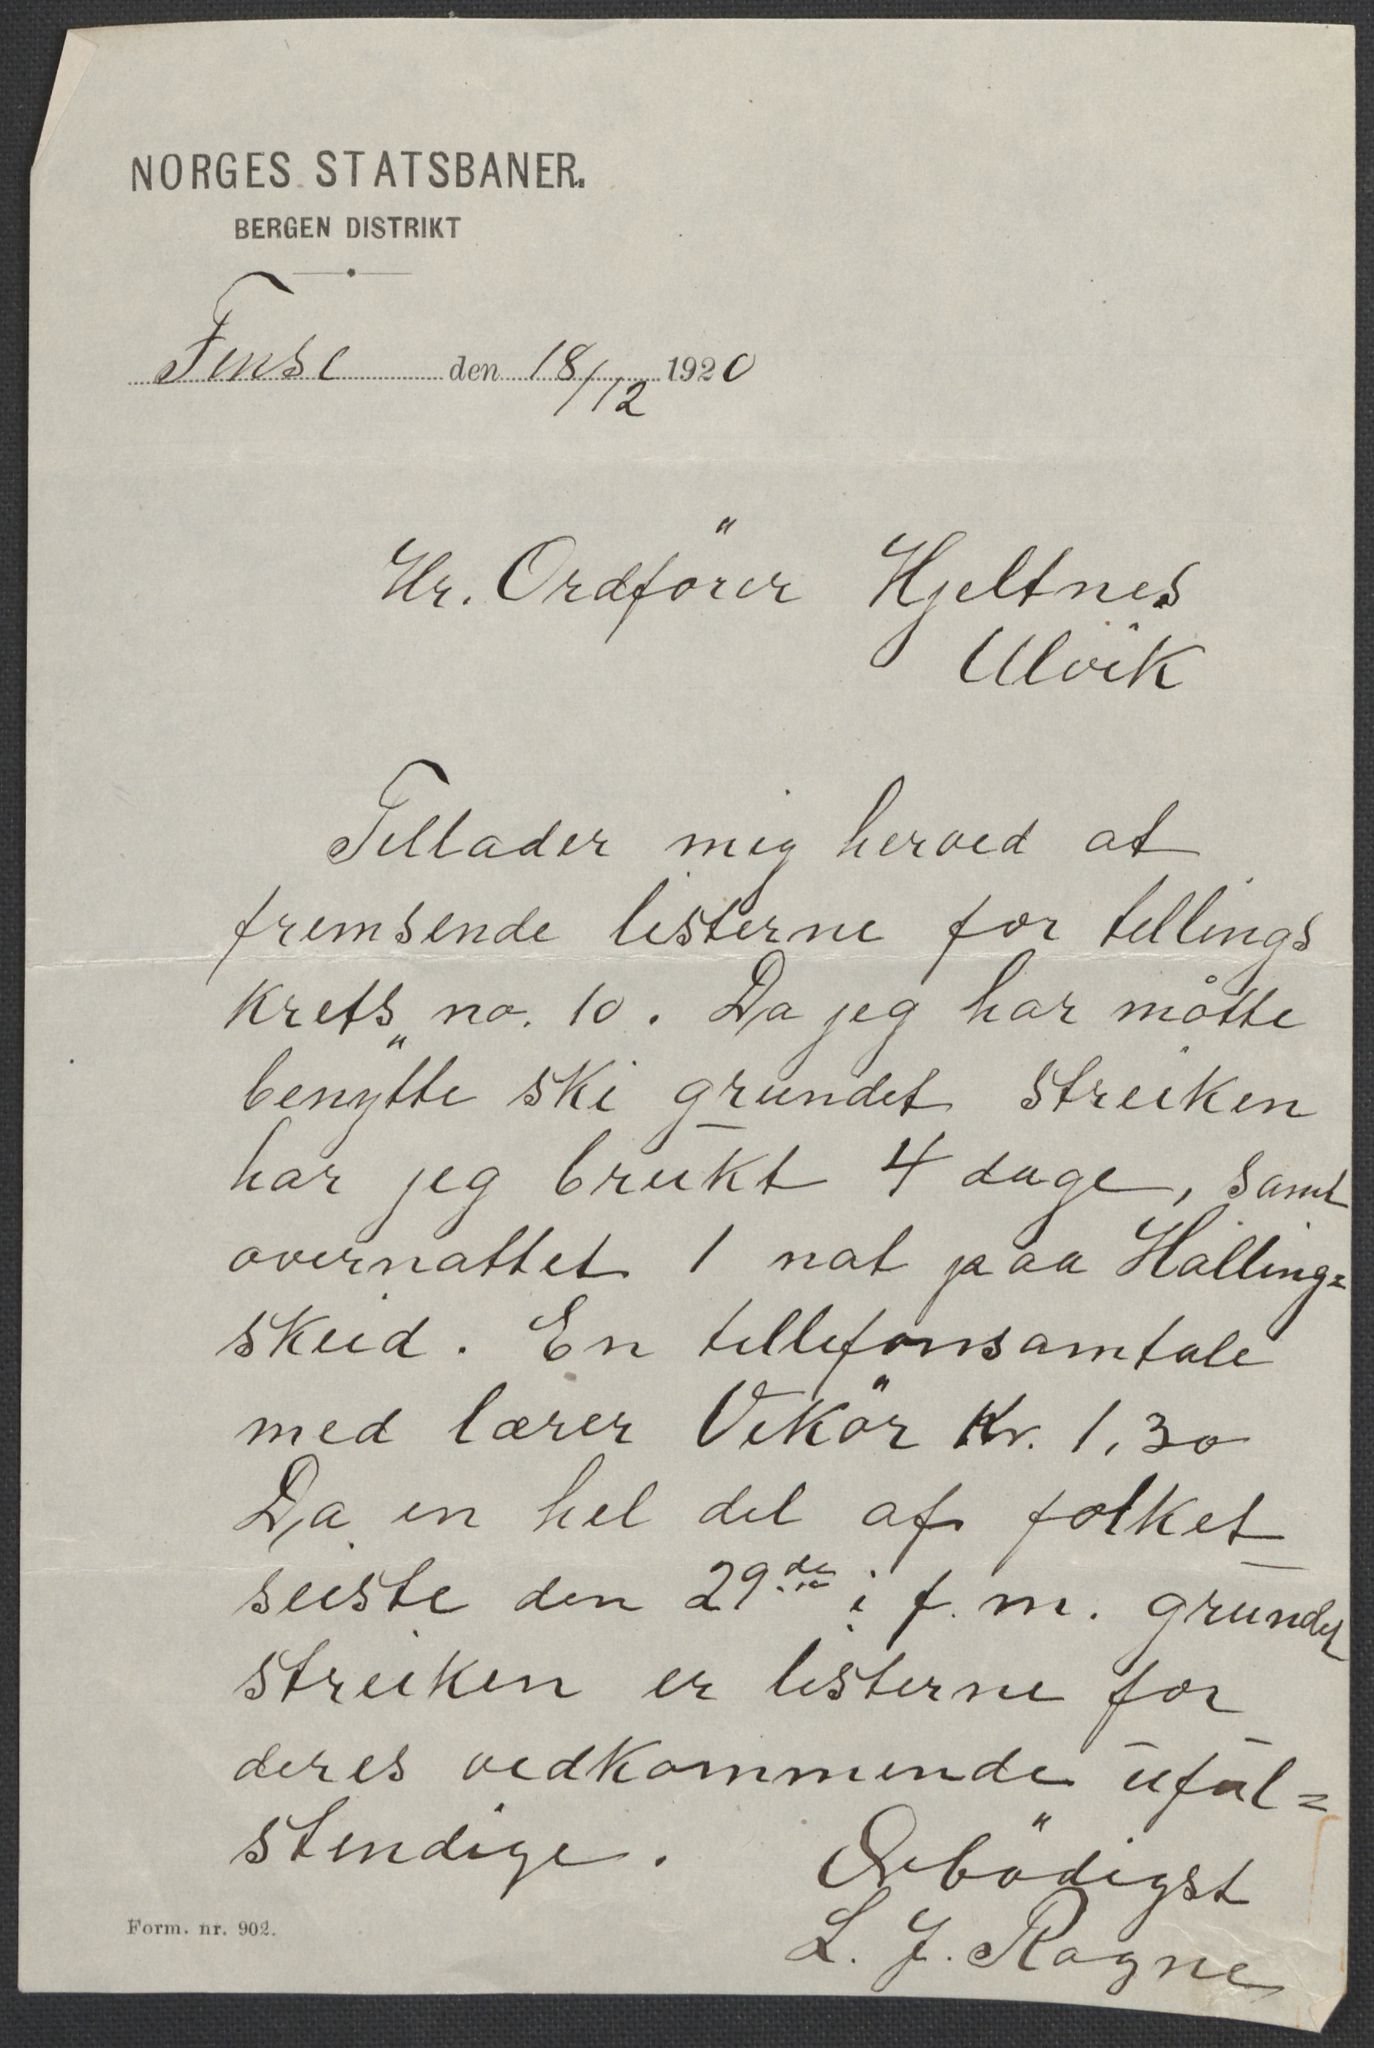 NORGES STATSBANER.
BERGEN DISTRIKT
Finse den 18/12 1920
Hr. Ordförer Hjeltnes
Ulvik
Tillader mig herved at
fremsende listerne for tellings
krets no. 10. Da jeg har måtte
benytte ski grundet streiken
har jeg brukt 4 dage, samt
overnattet 1 nat paa Halling=
skeid. En tellefonsamtale
med lærer Vikör Kr. 1,30
Da en hel del af folket
reiste den 29de i f. m. grundet
streiken er listerne for
deres vedkommende uful=
stendige.
Ærbödigst
L. J. Rogne
Form. nr. 902.